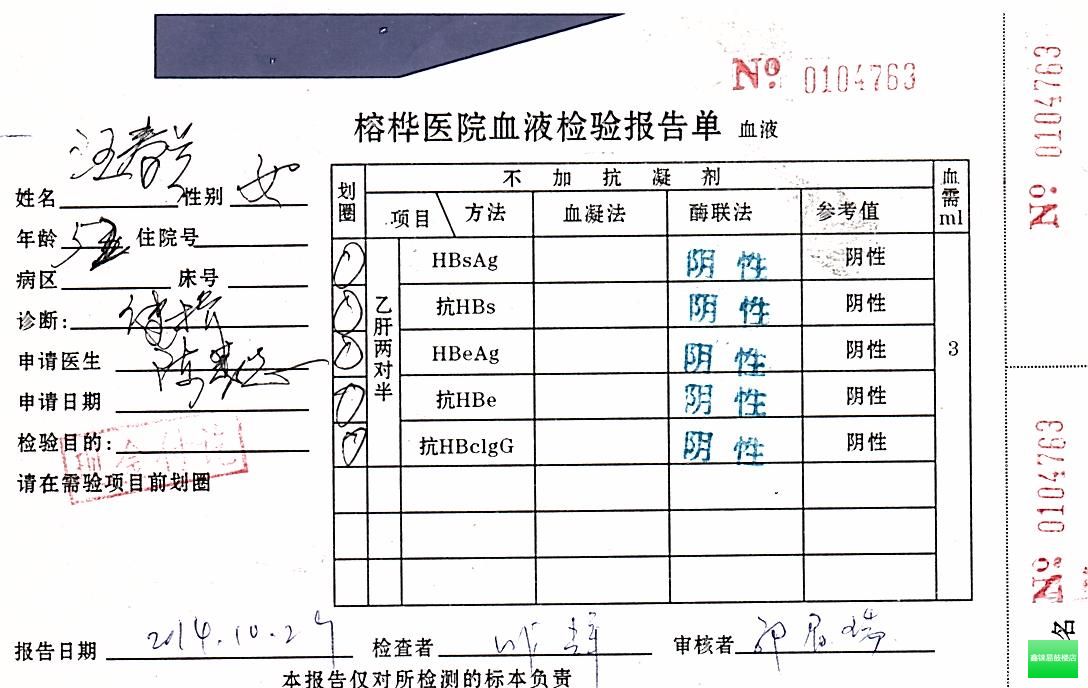 Nº 0104763
榕桦医院血液检验报告单 血液
姓名 汪春兰 性别 女
年龄 住院号
病区 床号
诊断:
申请医生
申请日期
检验目的:
请在需验项目前划圈
划圈 不加抗凝剂 血需ml
项目 方法 血凝法 酶联法 参考值
乙肝两对半
HBsAg 阴性 阴性
抗HBs 阴性 阴性
HBeAg 阴性 阴性 3
抗HBe 阴性 阴性
抗HBclgG 阴性 阴性
报告日期 2014.10.29 检查者 审核者
本报告仅对所检测的标本负责
Nº 0104763
Nº 0104763
名
鑫锦易鼓楼店